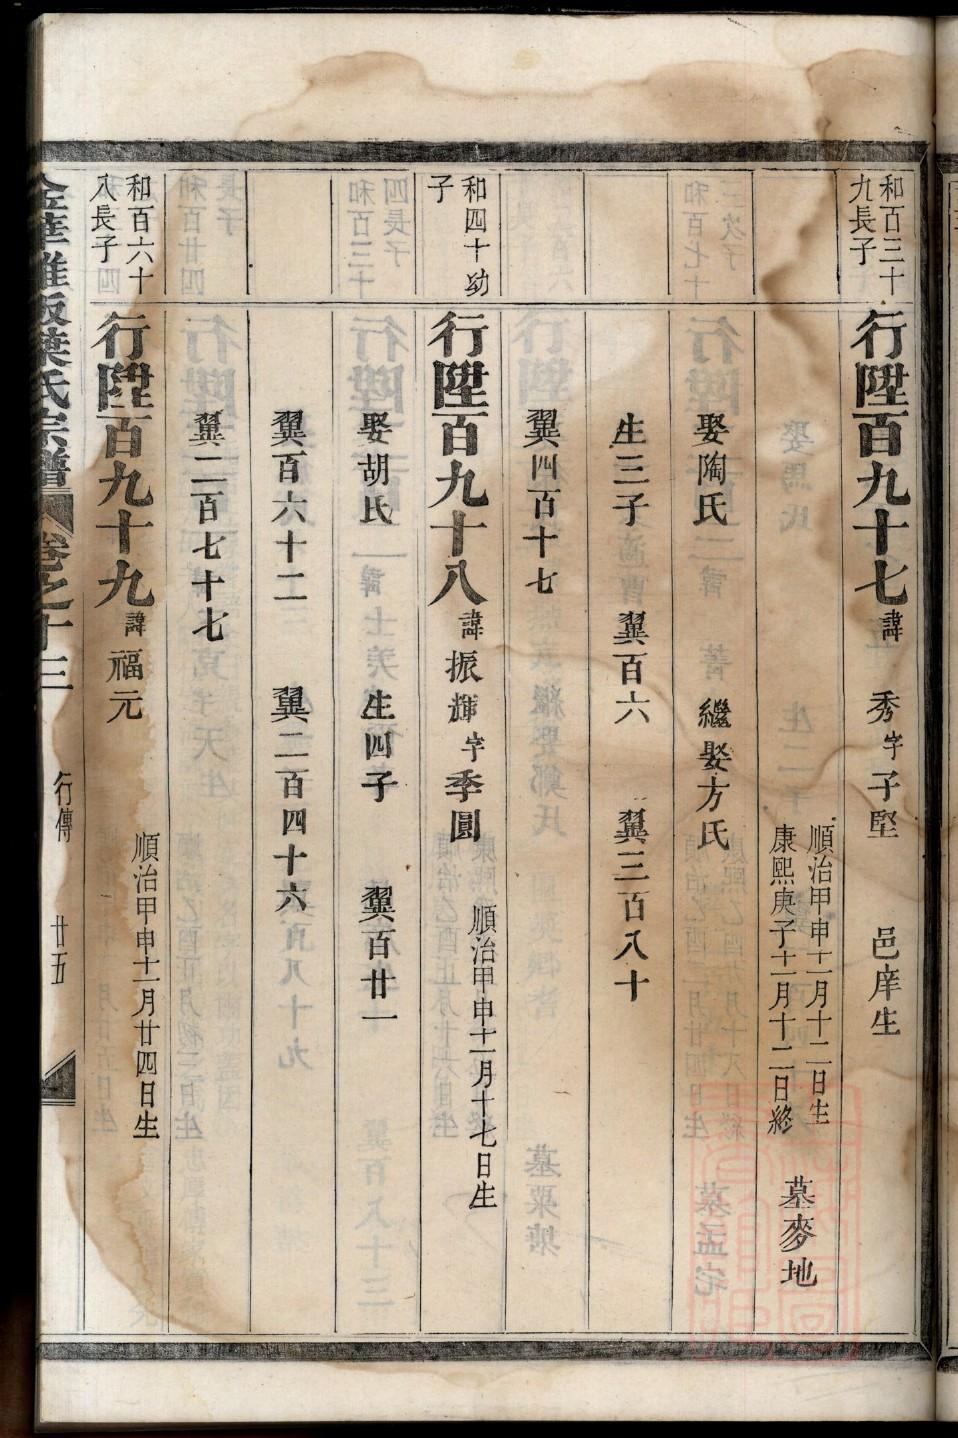 和百三十
九長子
行陞百九十七諱秀字子堅 邑庠生
順治甲申十一月十二日生
康熙庚子十一月十二日終
墓麥地
娶陶氏 繼娶方氏
生三子 翼百六 翼三百八十
翼四百十七
和四十幼
子
行陞百九十八諱振輝字季圓
順治甲申十一月十七日生
娶胡氏 生四子 翼百廿一
翼百六十二 翼二百四十六
翼二百七十七
和百六十
八長子
行陞百九十九諱福元
順治甲申十一月廿四日生
葉氏宗譜 卷之十三 行傳 廿五